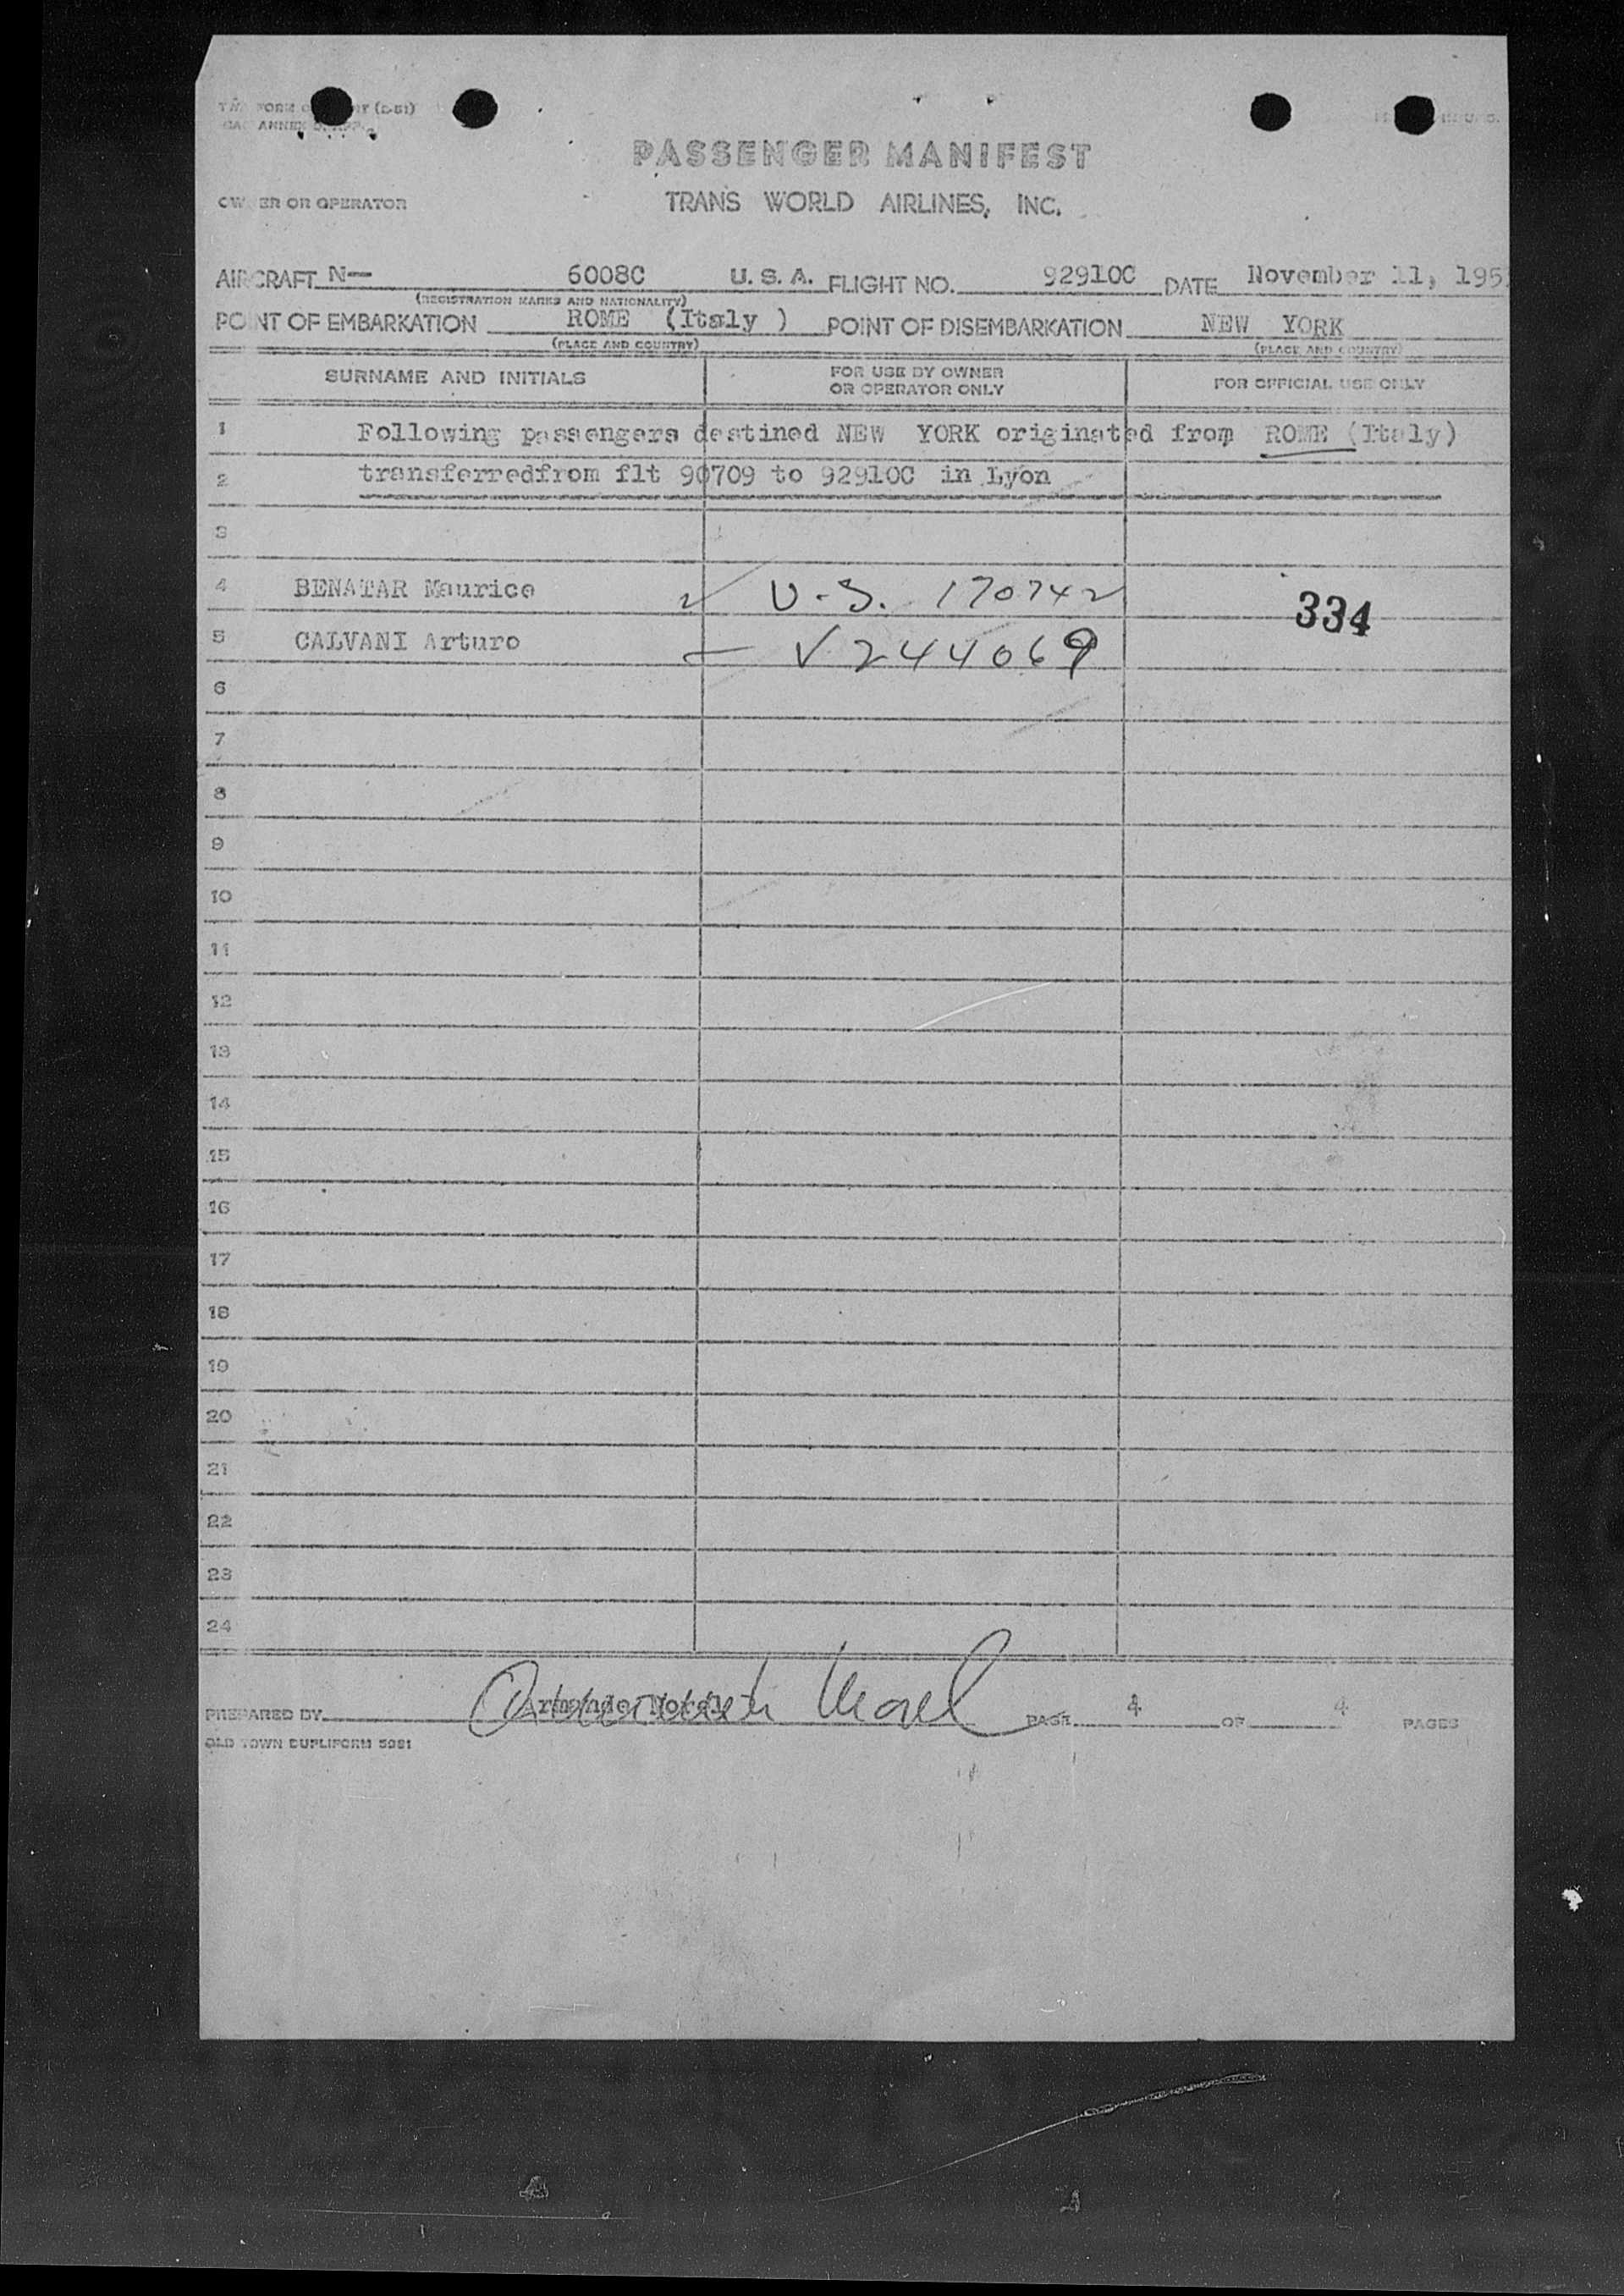 PASSENGER MANIFEST
OWNER OR OPERATOR TRANS WORLD AIRLINES, INC.
AIRCRAFT N— 6008C U. S. A. FLIGHT NO. 92910C DATE November 11, 195
(REGISTRATION MARKS AND NATIONALITY)
POINT OF EMBARKATION ROME (Italy ) POINT OF DISEMBARKATION NEW YORK
(PLACE AND COUNTRY) (PLACE AND COUNTRY)
SURNAME AND INITIALS FOR USE BY OWNER OR OPERATOR ONLY FOR OFFICIAL USE ONLY
1 Following passengers destined NEW YORK originated from ROME (Italy)
2 transferredfrom flt 90709 to 92910C in Lyon
3
4 BENATAR Maurice U.S. 170742 334
5 CALVANI Arturo V 244069
6
7
8
9
10
11
12
13
14
15
16
17
18
19
20
21
22
23
24
PREPARED BY PAGE 4 OF 4 PAGES
OLD TOWN DUPLIFORM 5981